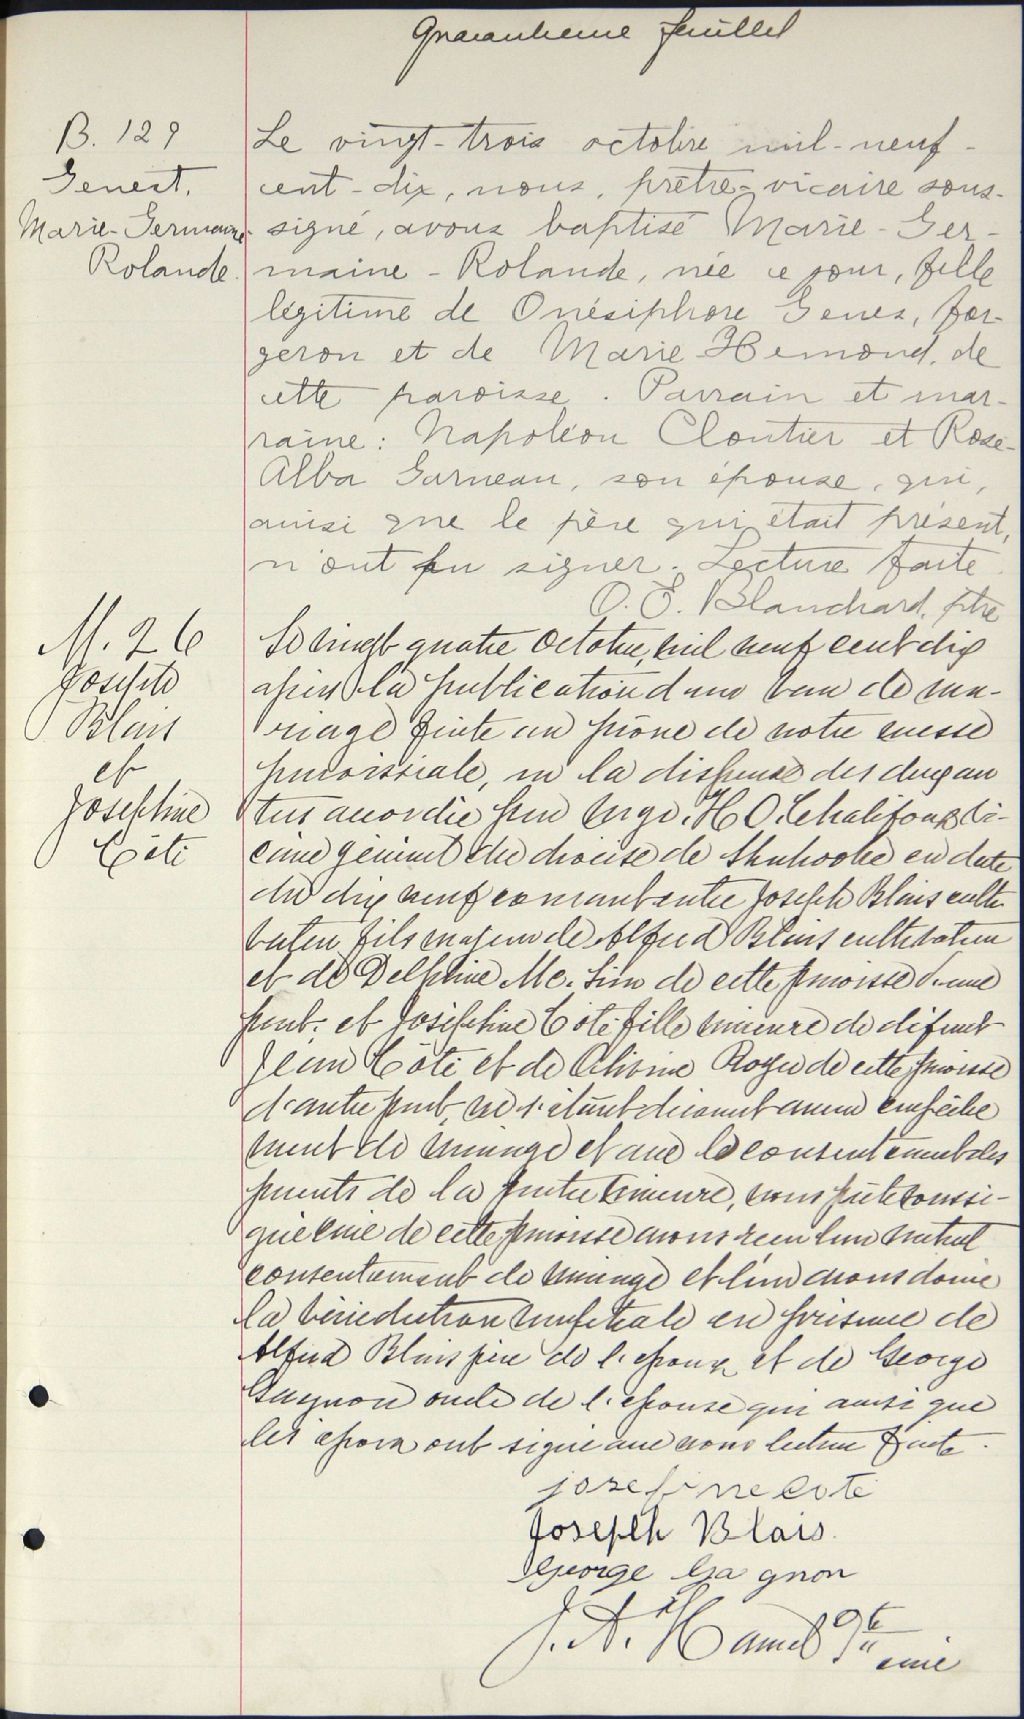 Quarantième feuillet
B. 129
Genest.
Marie-Germaine-
Rolande.
Le vingt-trois octobre mil-neuf-
cent-dix, nous, prêtre-vicaire sous-
signé, avons baptisé Marie-Ger-
maine-Rolande, née ce jour, fille
légitime de Onésiphore Genes, for-
geron et de Marie Hemond, de
cette paroisse. Parrain et mar-
raine: Napoléon Cloutier et Rose-
Alba Garneau, son épouse, qui,
ainsi que le père qui était présent,
n'ont pu signer. Lecture faite.
O. E. Blanchard, ptre
M. 26
Joseph
Blais
et
Josephine
Côté
Le vingt quatre octobre, mil neuf cent dix
après la publication d'un ban de ma-
riage faite au prône de notre messe
paroissiale, vu la dispense des deux au
tres accordée par Mgr. H. O. Chalifoux vi-
caire général du diocèse de Sherbrooke en date
du dix neuf courant entre Joseph Blais culti-
vateur fils majeur de Alfred Blais cultivateur
et de Delphine Mc. de cette paroisse d'une
part. et Joséphine Côté fille mineure de défunt
Jean Côté et de Royer de cette paroisse
d'autre part, ne s'étant découvert aucun empêche
ment de mariage et avec le consentement des
parents de la partie mineure, nous prêtre soussi-
gné curé de cette paroisse avons reçu leur mutuel
consentement de mariage et leur avons donné
la bénédiction nuptiale en présence de
Alfred Blais père de l'époux et de George
Gagnon oncle de l'épouse qui ainsi que
les époux ont signé avec nous lecture faite.
josefine Coté
Joseph Blais.
George Gagnon
J. A. Hamel Ptre
curé